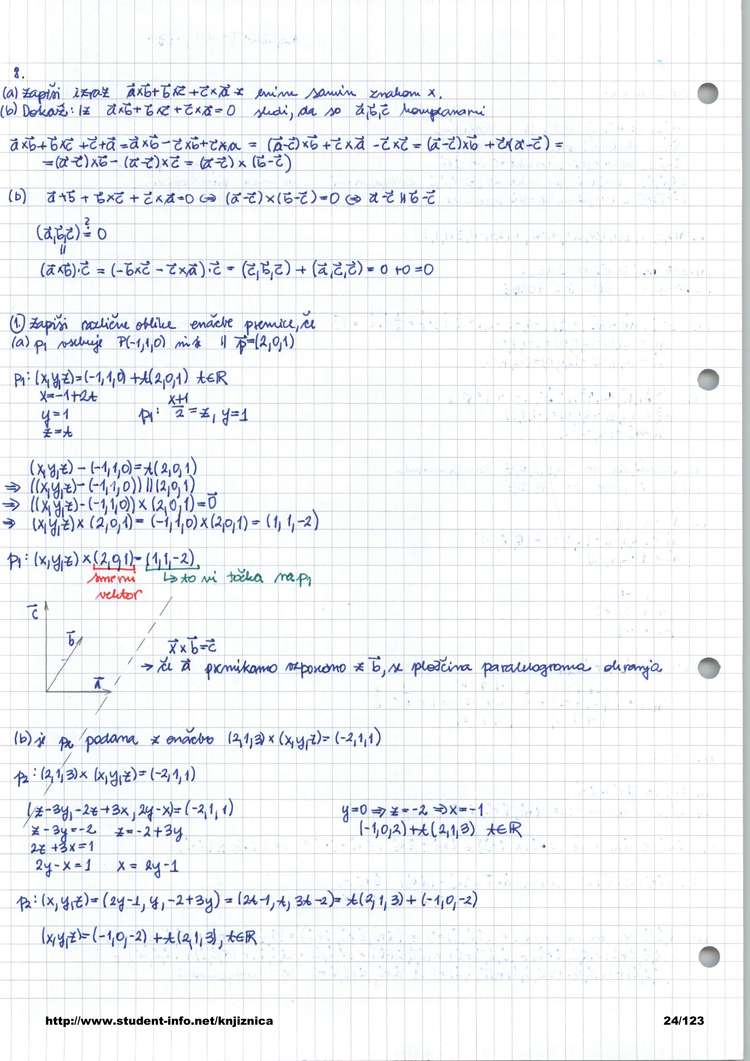 8.
(a) Zapiši izraz a⃗×b⃗+b⃗×c⃗+c⃗×a⃗ z enim samim znakom ×.
(b) Dokaži: Iz a⃗×b⃗+b⃗×c⃗+c⃗×a⃗=0 sledi, da so a⃗,b⃗,c⃗ komplanarni
a⃗×b⃗+b⃗×c⃗+c⃗+a⃗=a⃗×b⃗-c⃗×b⃗+c⃗×a = (a⃗-c⃗)×b⃗+c⃗×a⃗-c⃗×c⃗=(a⃗-c⃗)×b⃗+c⃗×(a⃗-c⃗)=
=(a⃗-c⃗)×b⃗-(a⃗-c⃗)×c⃗=(a⃗-c⃗)×(b⃗-c⃗)
(b) a⃗+b⃗+b⃗×c⃗+c⃗×a⃗=0 ⇔ (a⃗-c⃗)×(b⃗-c⃗)=0 ⇔ a⃗-c⃗ || b⃗-c⃗
?
(a⃗,b⃗,c⃗) = 0
||
(a⃗×b⃗)·c⃗ = (-b⃗×c⃗ - c⃗×a⃗)·c⃗ = (c⃗,b⃗,c⃗) + (a⃗,c⃗,c⃗) = 0+0=0
1. Zapiši različne oblike enačbe premice, če
(a) p₁ vsebuje P(-1,1,0) in je || p⃗=(2,0,1)
p₁: (x,y,z)=(-1,1,0)+t(2,0,1) t∈ℝ
x=-1+2t
y=1 p₁: (x+1)/2=z, y=1
z=t
(x,y,z)-(-1,1,0)=t(2,0,1)
⇒ ((x,y,z)-(-1,1,0)) || (2,0,1)
⇒ ((x,y,z)-(-1,1,0))×(2,0,1)=0⃗
⇒ (x,y,z)×(2,0,1)=(-1,1,0)×(2,0,1)=(1,1,-2)
p₁: (x,y,z)×(2,0,1)=(1,1,-2)
smerni ↳ to ni točka na p₁
vektor
c⃗
b⃗
x⃗×b⃗=c⃗
a⃗ → če a⃗ premikamo vzporedno z b⃗, se ploščina paralelograma ohranja
(b) je p₂ podana z enačbo (2,1,3)×(x,y,z)=(-2,1,1)
p₂: (2,1,3)×(x,y,z)=(-2,1,1)
(z-3y,-2z+3x,2y-x)=(-2,1,1) y=0 ⇒ z=-2 ⇒ x=-1
z-3y=-2 z=-2+3y (-1,0,2)+t(2,1,3) t∈ℝ
2z+3x=1
2y-x=1 x=2y-1
p₂: (x,y,z)=(2y-1,y,-2+3y)=(2t-1,t,3t-2)=t(2,1,3)+(-1,0,-2)
(x,y,z)=(-1,0,-2)+t(2,1,3), t∈ℝ
http://www.student-info.net/knjiznica 24/123